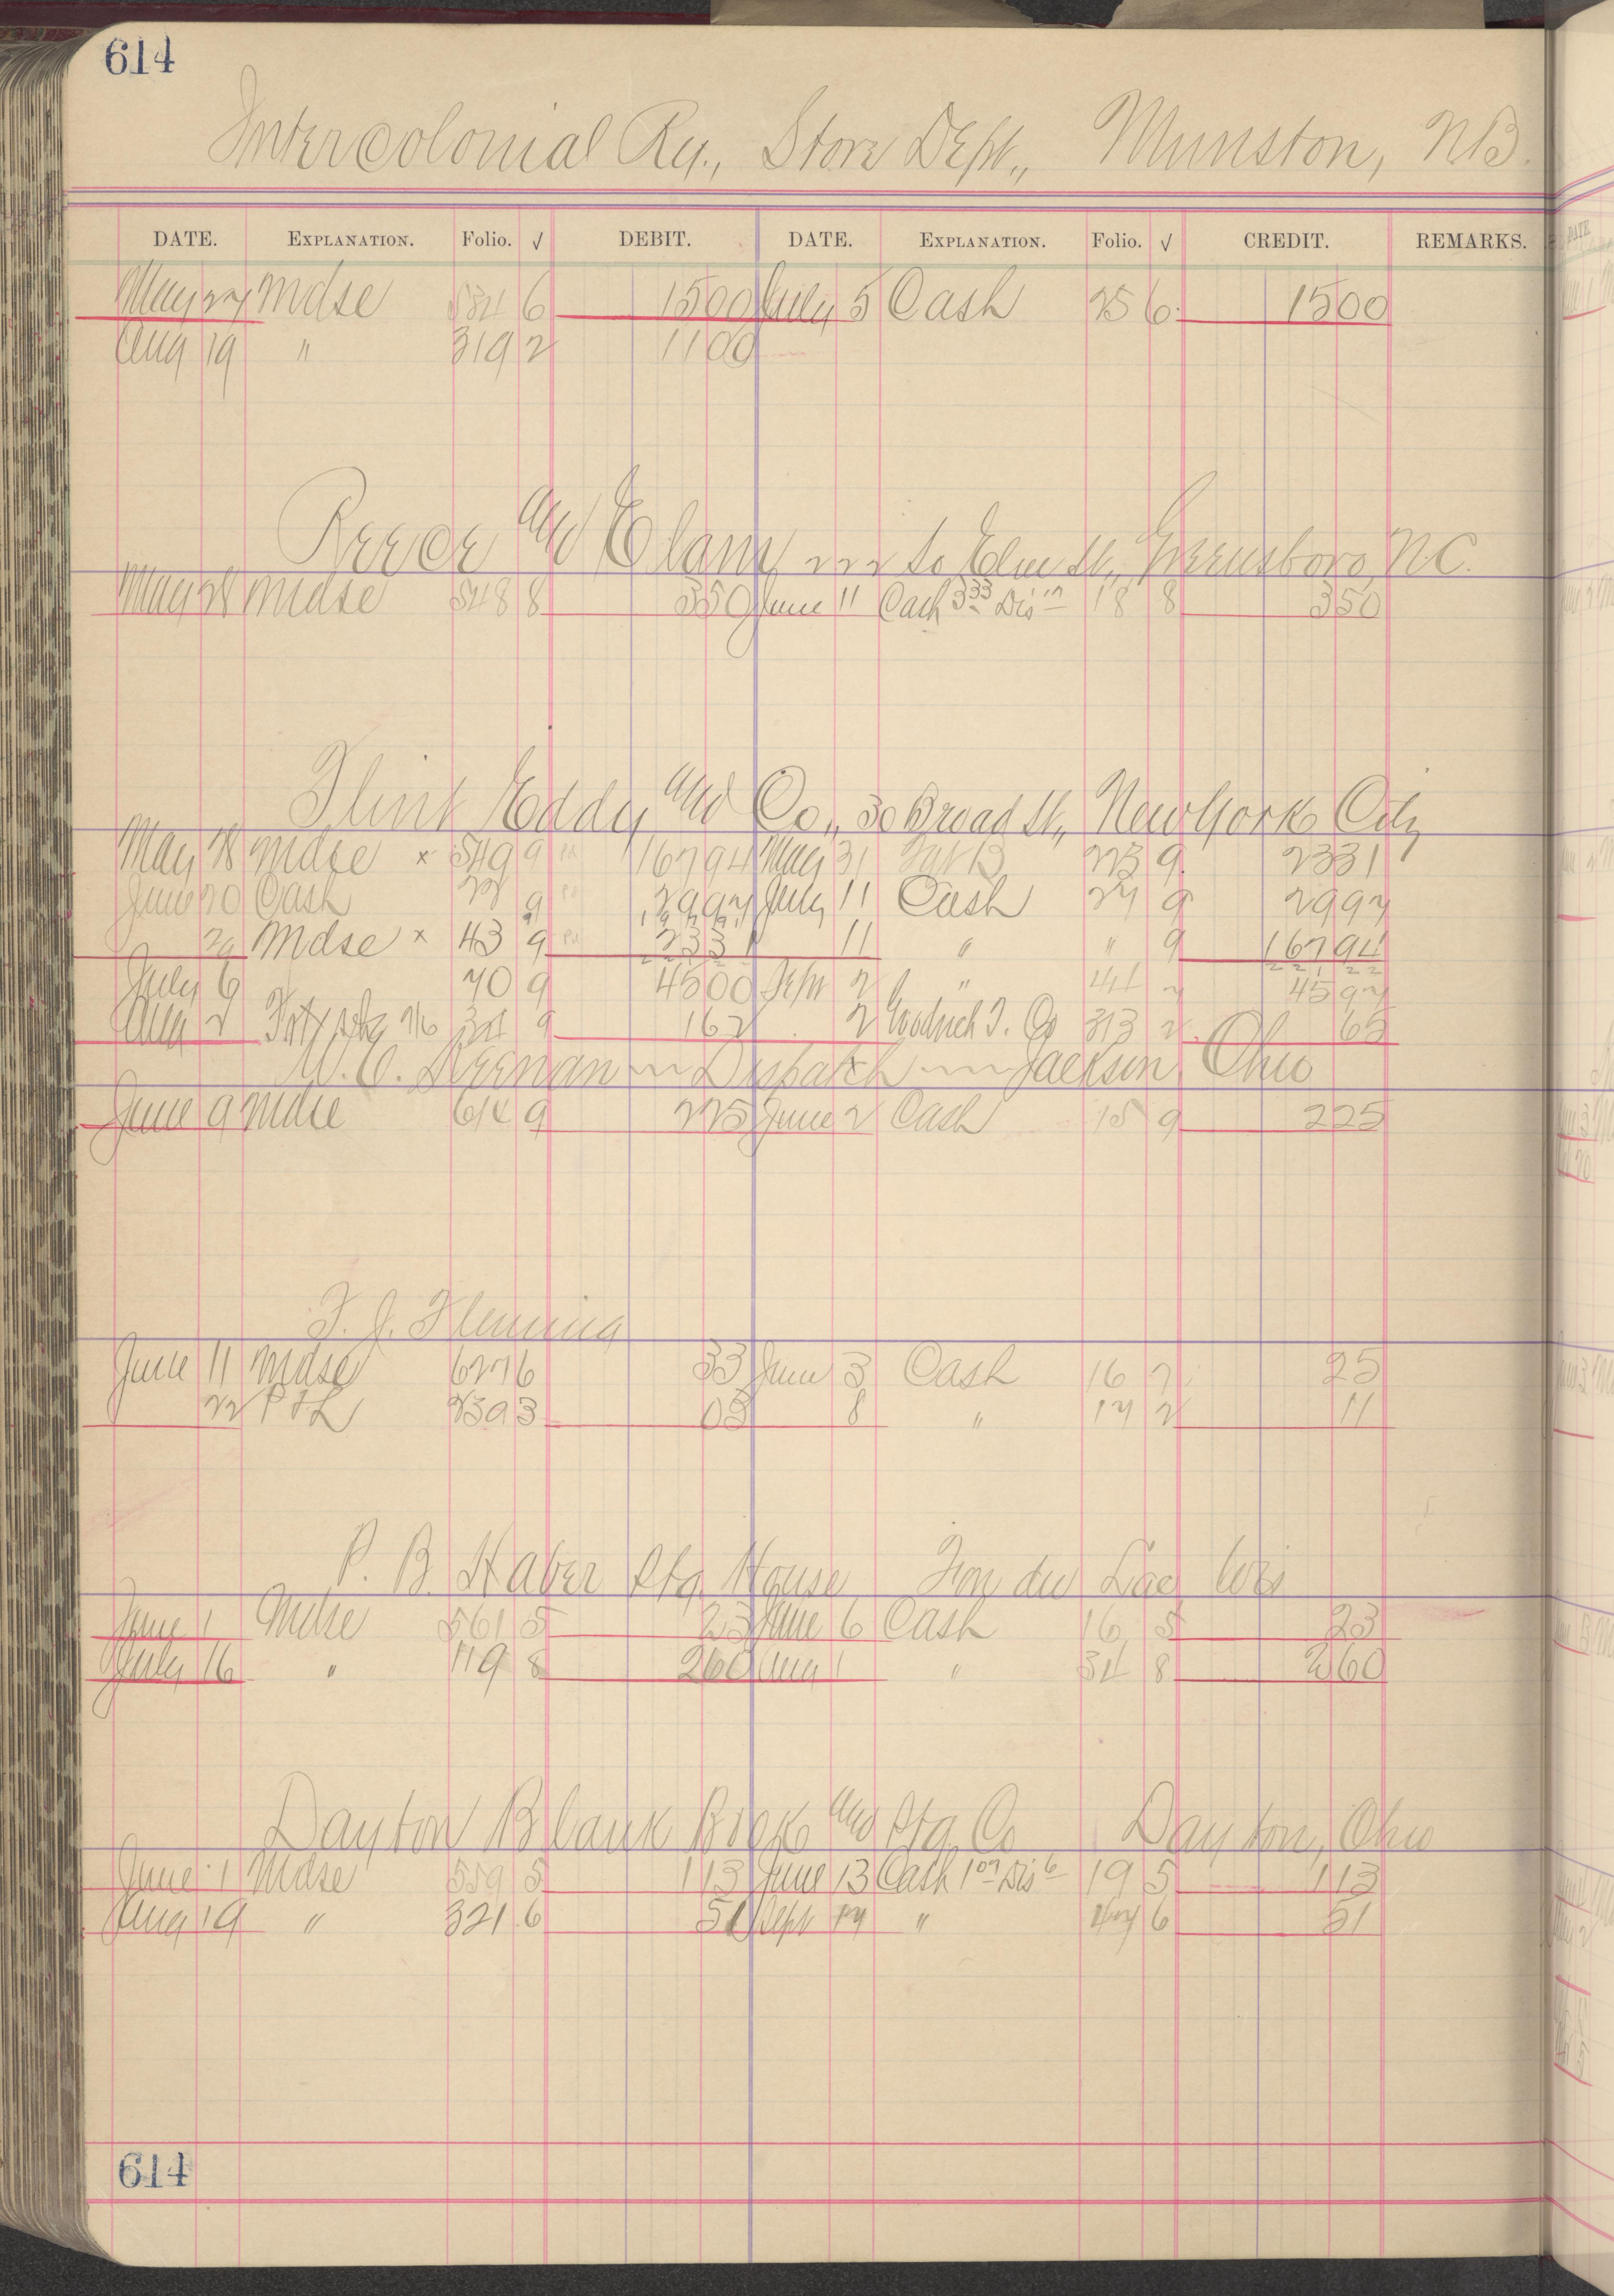 614
Intercolonial Ry., Store Dept., Munston, N.B.
DATE. EXPLANATION. Folio. √ DEBIT. DATE. EXPLANATION. Folio. √ CREDIT. REMARKS.
May 27 Mdse 534 6 1500 July 5 Cash 25 6 1500
Aug 19 " 319 2 1100
Reece and Elam 222 So Elm St., Greensboro, N.C.
May 28 Mdse 548 8 350 June 11 Cash 3 33 Dis 17 18 8 350
Flint Eddy and Co., 30 Broad St., New York City
May 28 Mdse x 549 9 Pd 167 94 May 31 223 9 2331
June 20 Cash 22 9 Pd 2997 July 11 Cash 27 9 2997
29 Mdse x 43 9 Pd 2331 11 " " 9 167 94
July 6 70 9 4500 Sept 2 " 44 7 4597
Aug 2 9 162 2 Goodrich T. Co 313 2 65
Dispatch Jackson Ohio
June 9 Mdse 614 9 225 June 2 Cash 15 9 225
T. J. Fleming
June 11 Mdse 627 6 33 June 3 Cash 16 7 25
22 P & L 239 3 03 8 " 17 2 11
P. B. Haber Ptg House Fon du Lac Wis
June 1 Mdse 561 5 23 June 6 Cash 16 5 23
July 16 " 119 8 260 Aug 1 " 34 8 260
Dayton Blank Book and Ptg Co Dayton, Ohio
June 1 Mdse 559 5 113 June 13 Cash 1 07 Dis 6 19 5 113
Aug 19 " 321 6 51 Sept 17 " 47 6 51
614